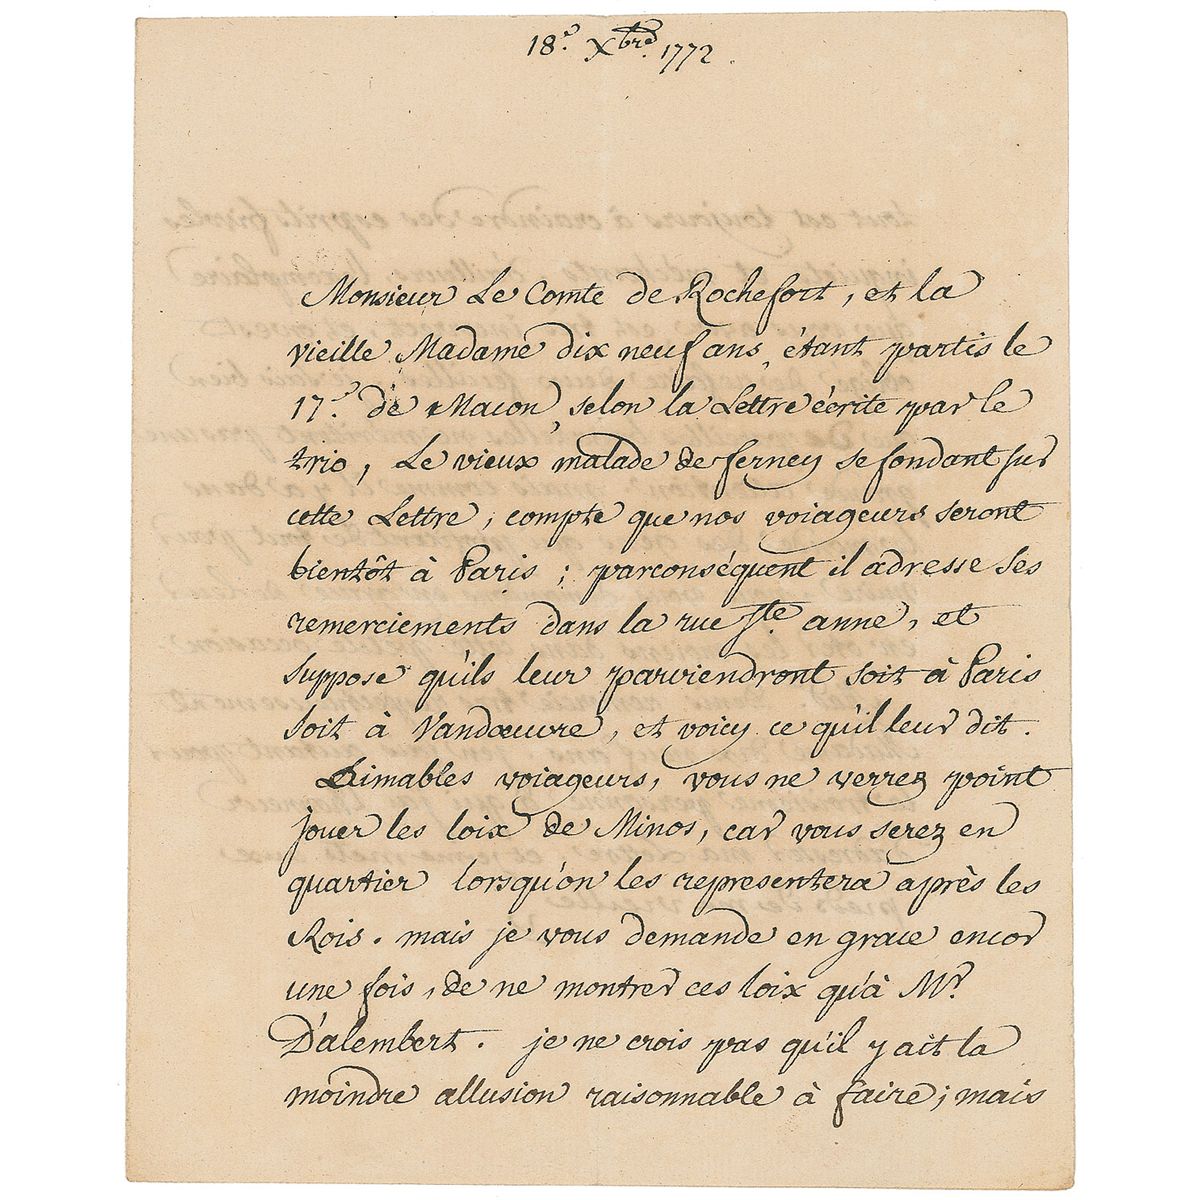 18.e Xbre 1772.
Monsieur Le Comte de Rochefort, et la
vieille Madame dix neuf ans, étant partis le
17.e de Macon, selon la Lettre écrite par le
trio, Le vieux malade de ferney se fondant sur
cette Lettre, compte que nos voiageurs seront
bientôt à Paris; parconséquent il adresse ses
remerciements dans la rue Ste anne, et
suppose qu'ils leur parviendront soit à Paris
soit à Vandœuvre, et voicy ce qu'il leur dit.
Aimables voiageurs, vous ne verrez point
jouer les loix de Minos, car vous serez en
quartier lorsqu'on les representera après les
Rois. mais je vous demande en grace encor
une fois, de ne montrer ces loix qu'à Mr.
D'alembert. je ne crois pas qu'il y ait la
moindre allusion raisonnable à faire; mais